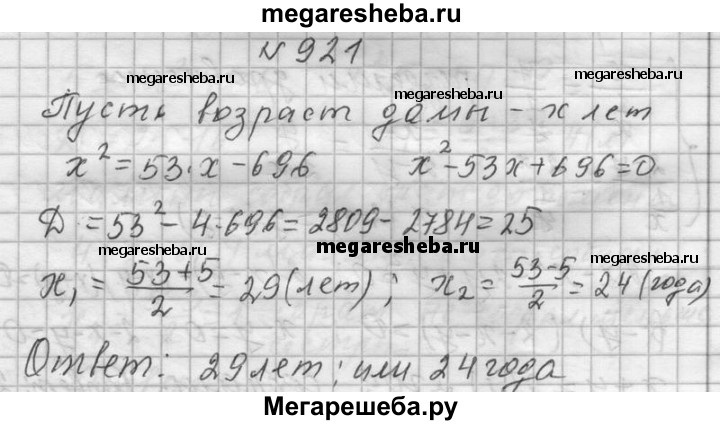 megaresheba.ru
№ 921
megaresheba.ru megaresheba.ru
Пусть возраст дамы - x лет
x² = 53·x - 696 x² - 53x + 696 = 0
Д = 53² - 4·696 = 2809 - 2784 = 25
megaresheba.ru megaresheba.ru megaresheba.ru
x₁ = (53+5)/2 = 29 (лет); x₂ = (53-5)/2 = 24 (года)
Ответ: 29 лет; или 24 года
Мегарешеба.ру